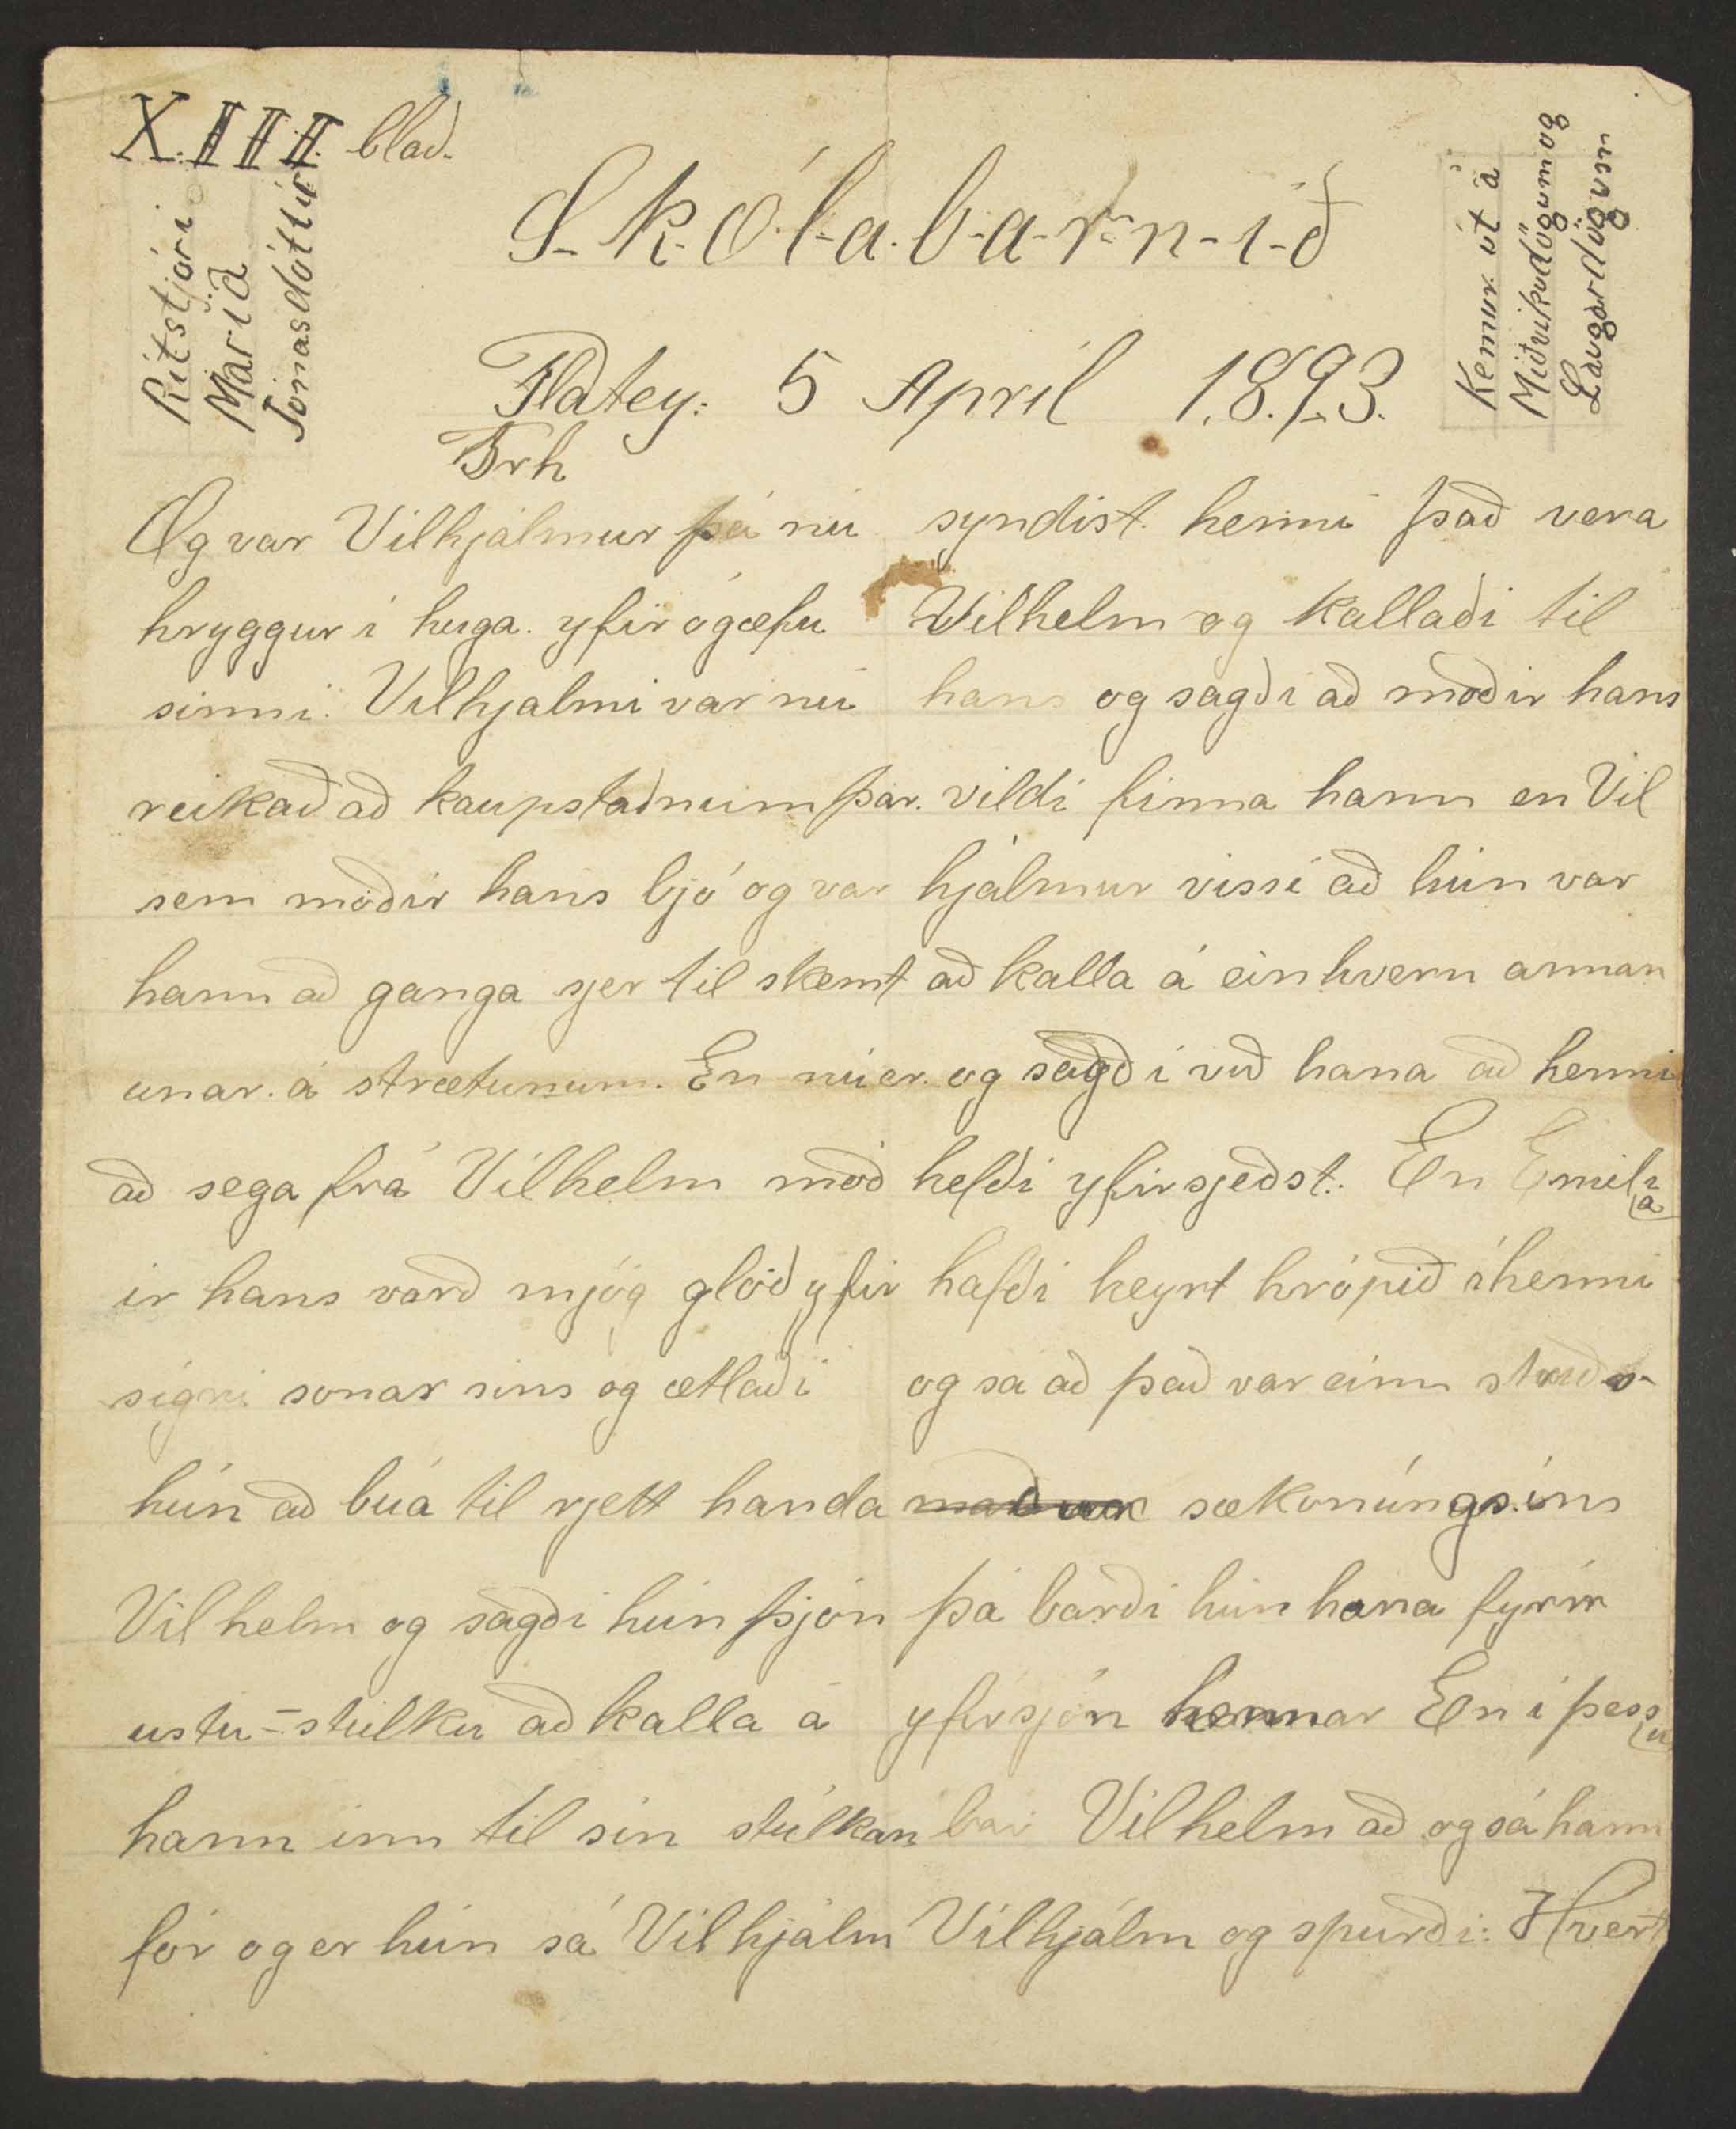 XIII blað.
Ritstjóri
María
Jónasdóttir
S-k-ó-l-a-b-a-r-n-i-ð
Kemur út á
Miðvikudögum og
Laugardögum
Flatey: 5 April 1.8.9.3.
Frh
Og var Vilhjálmur þá nú
hryggur í huga. yfir ógæfu
sinni. Vilhjalmi var nú
reikað að kaupstaðnum þar.
sem móðir hans bjó og var
hann að ganga sjer til skemt
unar. á strætunum. En nú er.
að sega frá Vilhelm móð
ir hans varð mjög glöð yfir
sigri sonar sins og ætlaði
hún að búa til rjett handa
Vilhelm og sagði hún þjón
ustu-stúlku að kalla á
hann inn til sín stúlkan
fór og er hún sá Vilhjálm
syndist henni það vera
Vilhelm og kallaði til
hans og sagði að móðir hans
vildi finna hann en Vil
hjálmur vissi að hún var
að kalla á einhvern annan
og sagði við hana að henni
hefði yfirsjeðst. En Emilia
hafði heyrt hrópið í henni
og sá að það var einn
sækonúngsins
þá barði hún hana fyrir
yfirsjón hennar En í þessu
bar Vilhelm að og sá hann
Vilhjálm og spurði: Hvert